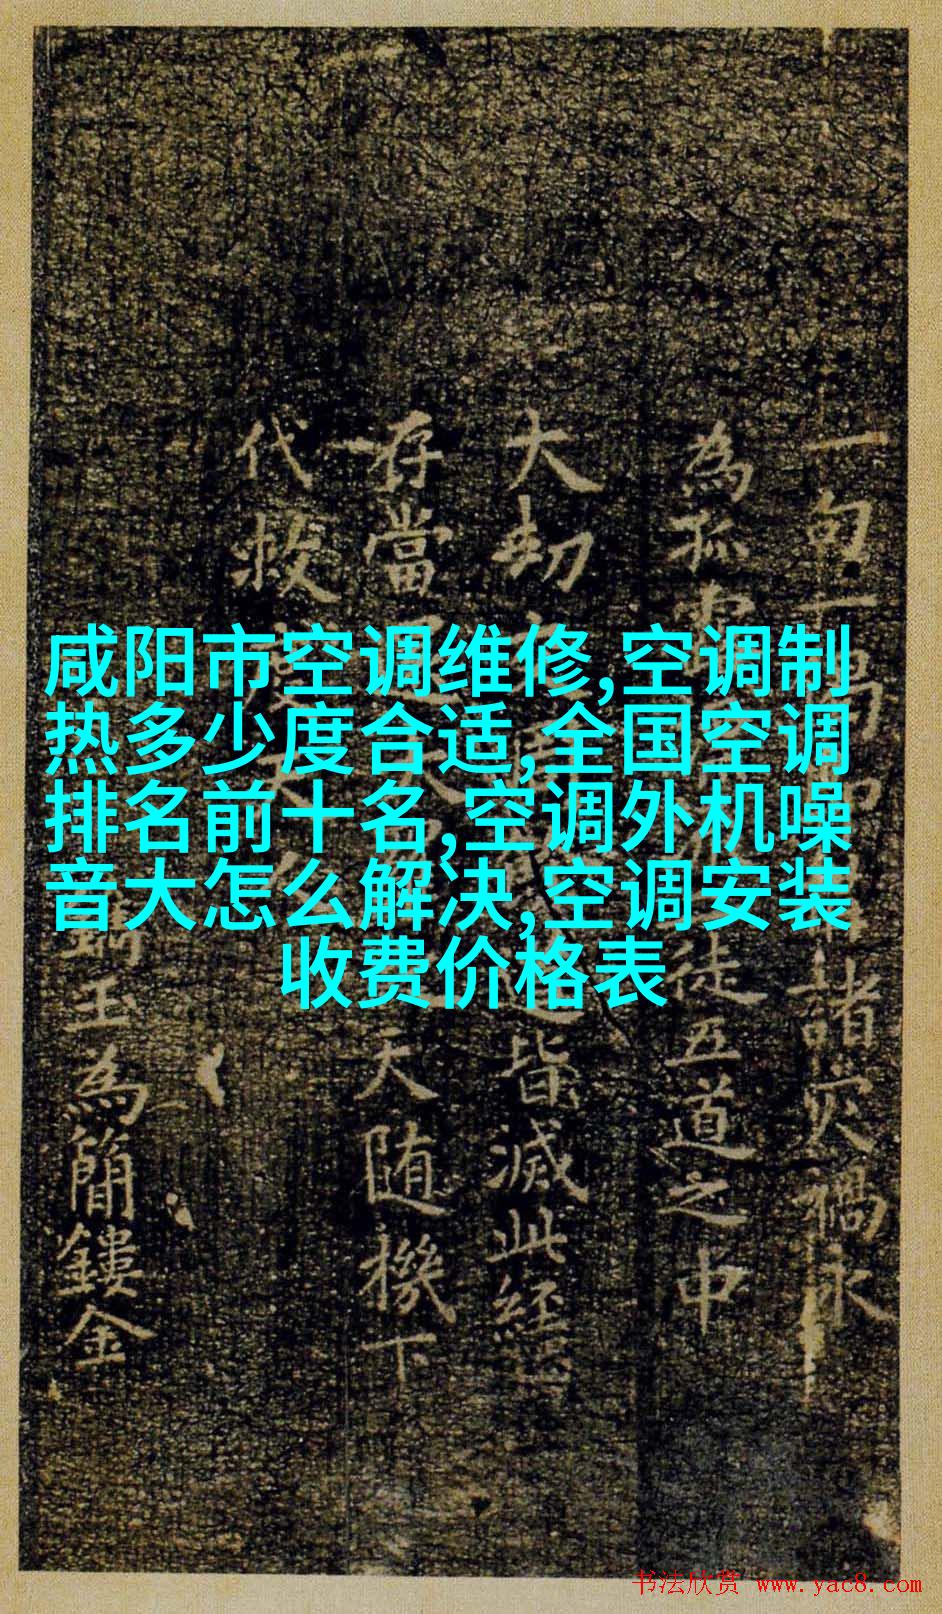 咸阳市空调维修,空调制
热多少度合适,全国空调
排名前十名,空调外机噪
音大怎么解决,空调安装
收费价格表
一句一
諸灾禍永
為孤
徒五道之中
大劫
皆滅此經
存當
天随機下
代救
玉為簡鏤金
书法欣赏 www.yac8.com